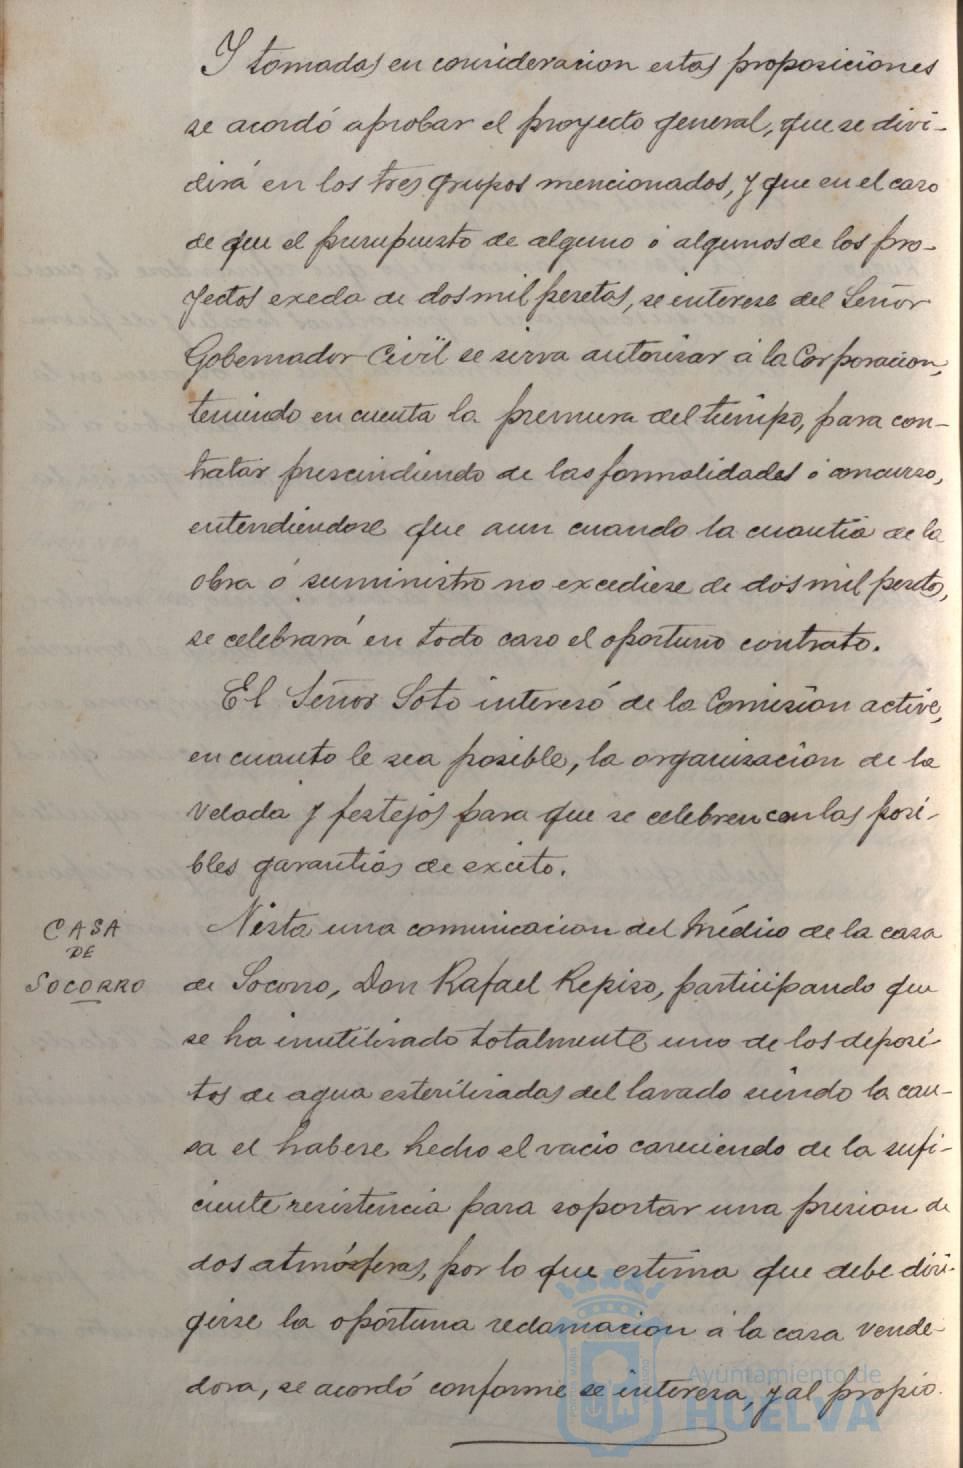 Y tomadas en consideracion estas proposiciones
se acordó aprobar el proyecto general, que se divi-
dirá en los tres grupos mencionados, y que en el caso
de que el presupuesto de alguno ó algunos de los pro-
yectos exeda de dos mil pesetas, se interese del Señor
Gobernador Civil se sirva autorisar á la Corporacion,
teniendo en cuenta la premura del tiempo, para con-
tratar prescindiendo de las formalidades ó concurso,
entendiendose que aun cuando la cuantia de la
obra ó suministro no excediese de dos mil pesetas,
se celebrará en todo caso el oportuno contrato.
El Señor Soto interesó de la Comision active,
en cuanto le sea posible, la organisacion de la
velada y festejos para que se celebren con las posi-
bles garantias de exito.
CASA
DE
SOCORRO
Vista una comunicacion del Médico de la casa
de Socorro, Don Rafael Repiso, participando que
se ha inutilisado totalmente uno de los deposi-
tos de agua esterilisadas del lavado siendo la cau-
sa el haberse hecho el vacio careciendo de la sufi-
ciente resistencia para soportar una presion de
dos atmósferas, por lo que estima que debe diri-
girse la oportuna reclamacion á la casa vende-
dora, se acordó conforme se interesa, y al propio
Ayuntamiento de
HUELVA